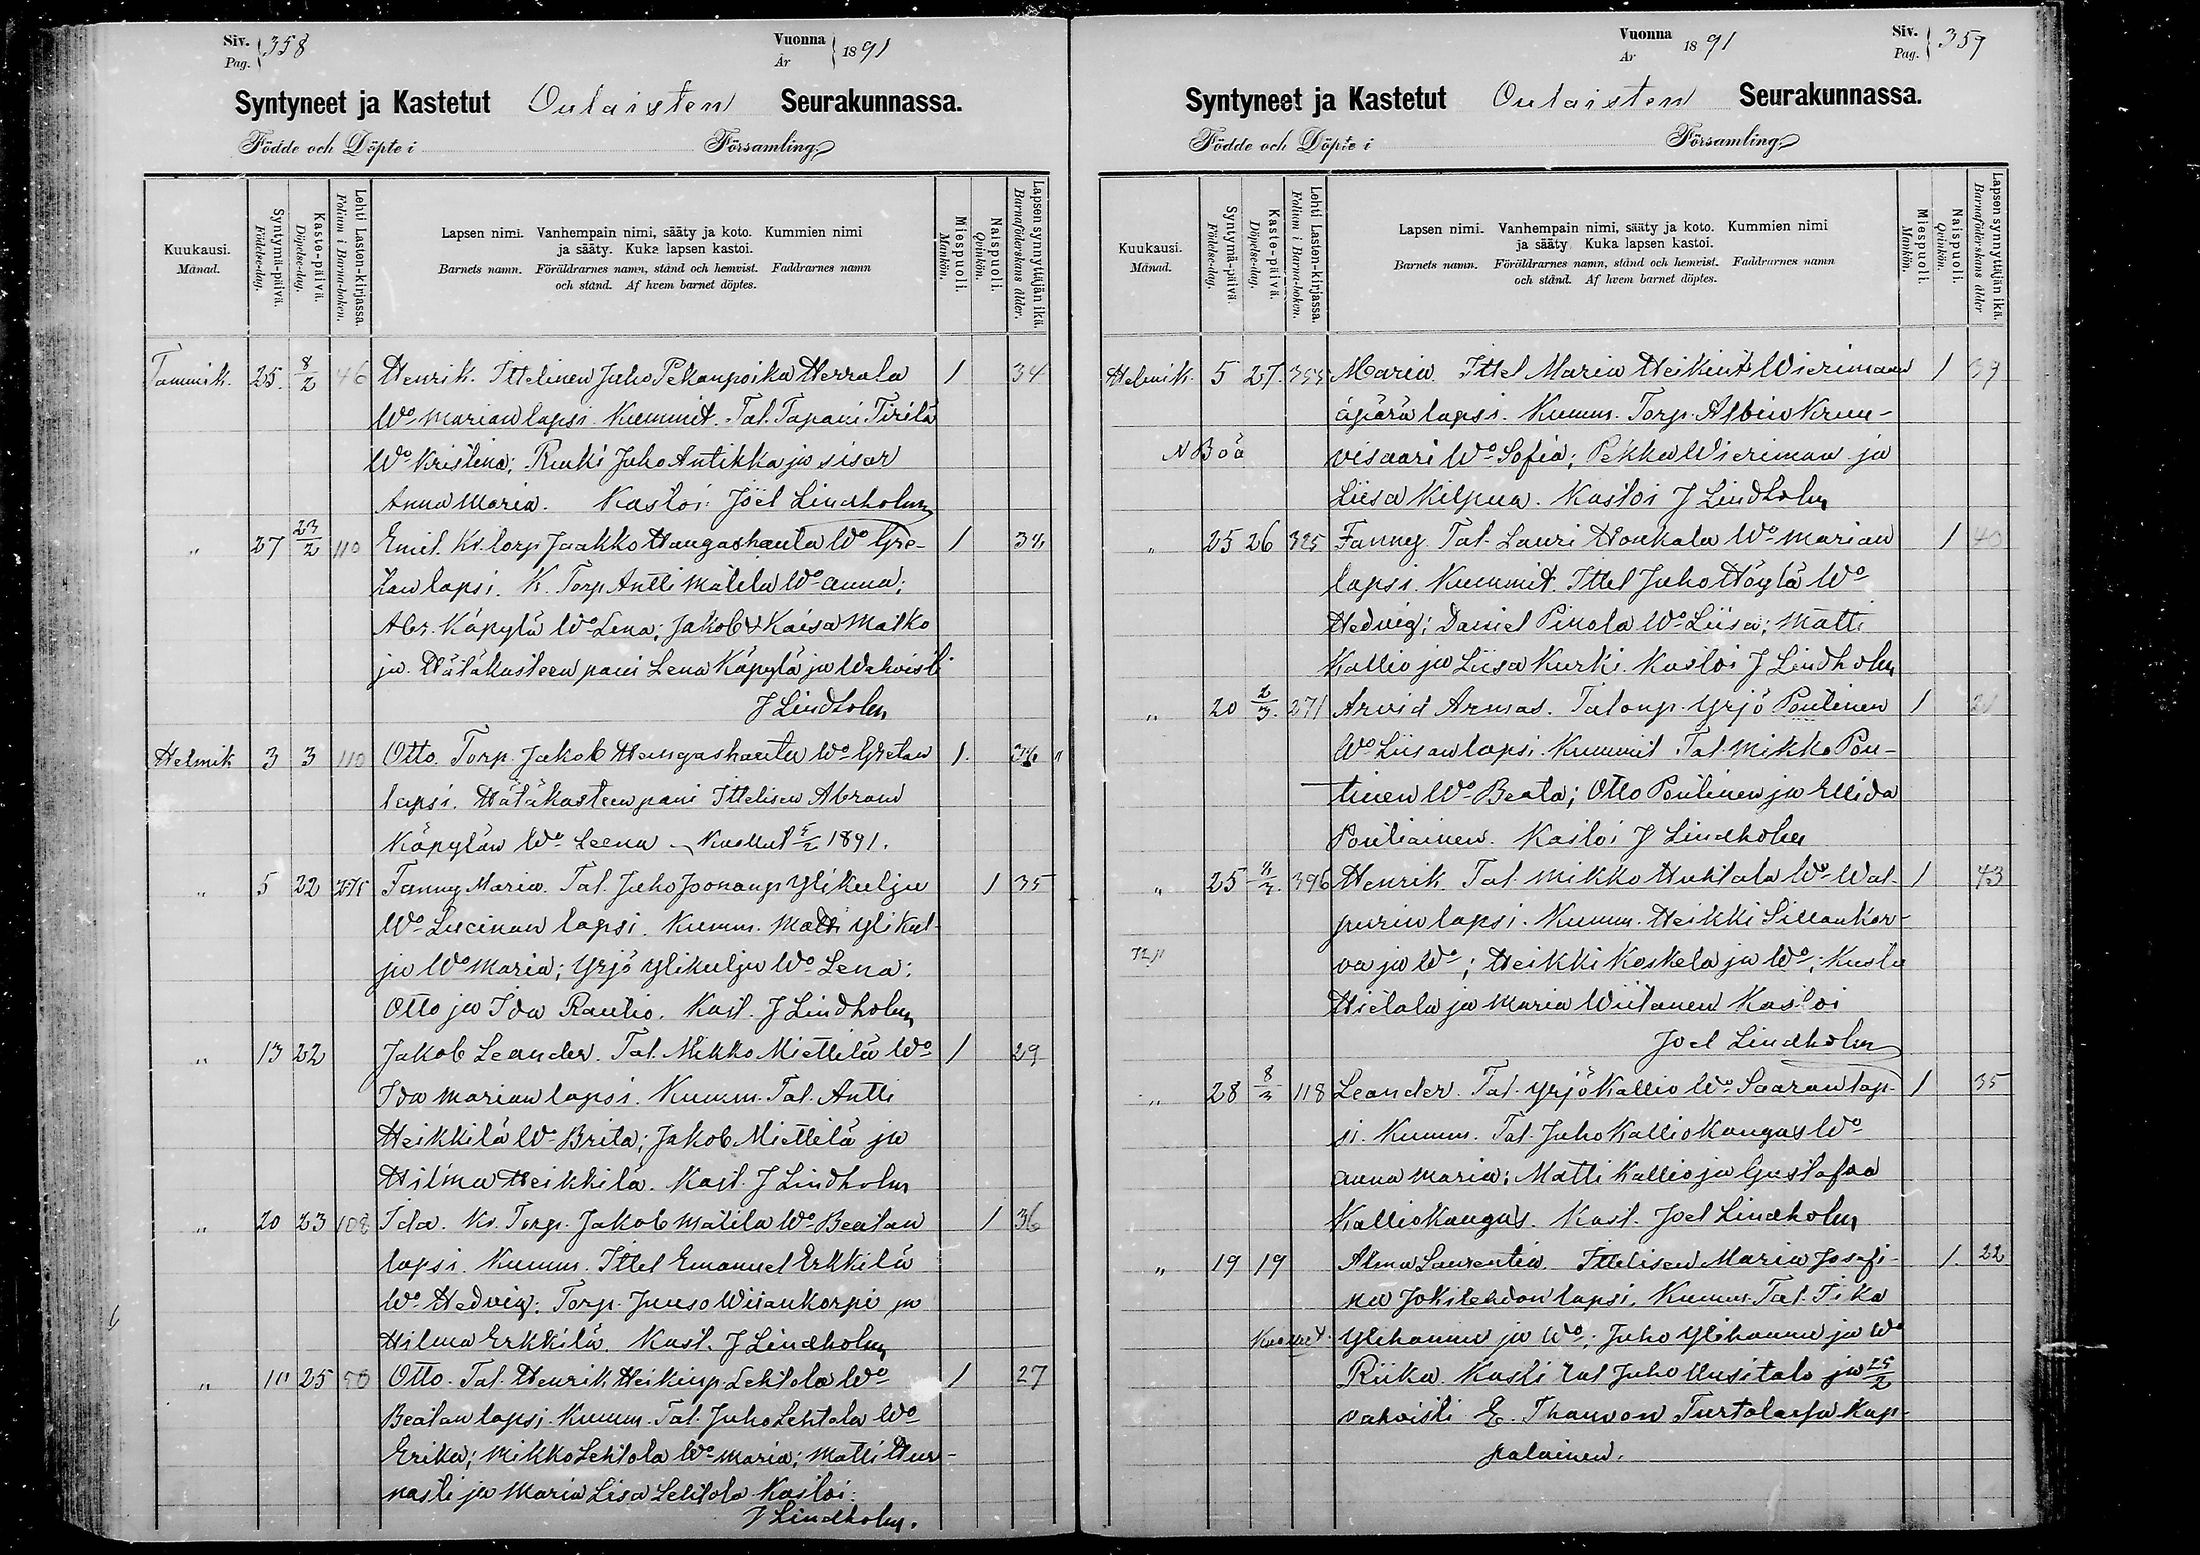 Siv. Pag. 358 Vuonna År 1891
Syntyneet ja Kastetut Oulaisten Seurakunnassa.
Födde och Döpte i Församling.
Kuukausi. Månad. Syntymä-päivä. Födelse-dag. Kaste-päivä. Döpelse-dag. Lehti Lasten-kirjassa. Folium i Barna-boken. Lapsen nimi. Vanhempain nimi, sääty ja koto. Kummien nimi ja sääty. Kuka lapsen kastoi. Barnets namn. Föräldrarnes namn, stånd och hemvist. Faddrarnes namn och stånd. Af hvem barnet döptes. Miespuoli. Mankön. Naispuoli. Qvinkön. Lapsen synnyttäjän ikä. Barnaföderskans ålder.
Tammik. 25. 8/2 46 Henrik. Ittelinen Juho Pekanpoika Herrala 1 34
Wo Marian lapsi. Kummit. Tal. Tapani Tirilä
Wo Kristina; Renki Juho Antikka ja sisar
Anna Maria. Kastoi Joel Lindholm
" 27 23/2 110 Emil. Ks. torp. Jaakko Hangashauta Wo Gre- 1
tan lapsi. K. Torp. Antti Mätilä Wo Anna;
Abr. Käpylä Wo Lena; Jakob & Kaisa Matko
ja. Hätäkasteen pani Lena Käpylä ja Wahvisti
J Lindholm
Helmik 3 3 110 Otto. Torp. Jakob Hangashauta Wo Gretan 1.
lapsi. Hätäkasteen pani Ittelisen Abram
Käpylän Wo Leena. Kuollut 5/2 1891.
" 5 22 275 Fanny Maria. Tal. Juho Joonanp Ylikulju 1 35
Wo Lucinan lapsi. Kumm. Matti Ylikul-
ju Wo Maria; Yrjö Ylikulju Wo Lena;
Otto ja Ida Rautio. Kast. J Lindholm
" 13 22 Jakob Leander. Tal. Mikko Miettilä Wo 1 29
Ida Marian lapsi. Kumm. Tal. Antti
Heikkilä Wo Brita; Jakob Miettilä ja
Hilma Heikkilä. Kast. J Lindholm
" 20 23 108 Ida. Ks. Torp. Jakob Mätilä Wo Beatan 1 36
lapsi. Kumm. Ittel Emanuel Erkkilä
Wo Hedvig; Torp. Juuso Wiiankorpi ja
Hilma Erkkilä. Kast. J Lindholm
" 25 Otto. Tal. Henrik Heikinp Lehtola Wo 1 27
Beatan lapsi. Kumm. Tal. Juho Lehtola Wo
Erika; Mikko Lehtola Wo Maria; Matti Hur-
nasti ja Maria Lisa Lehtola Kastoi:
J Lindholm.
Vuonna År 1891 Siv. Pag. 359
Syntyneet ja Kastetut Oulaisten Seurakunnassa.
Födde och Döpte i Församling.
Kuukausi. Månad. Syntymä-päivä. Födelse-dag. Kaste-päivä. Döpelse-dag. Lehti Lasten-kirjassa. Folium i Barna-boken. Lapsen nimi. Vanhempain nimi, sääty ja koto. Kummien nimi ja sääty. Kuka lapsen kastoi. Barnets namn. Föräldrarnes namn, stånd och hemvist. Faddrarnes namn och stånd. Af hvem barnet döptes. Miespuoli. Mankön. Naispuoli. Qvinkön. Lapsen synnyttäjän ikä. Barnaföderskans ålder
Helmik. 5 27. 353 Maria. Ittel Maria Heikint Wieriman 1 39
äpärä lapsi. Kumm. Torp. Albin Kruu-
visaari Wo Sofia; Pekka Wieriman ja
Liisa Kilpua. Kastoi J Lindholm
" 25 26 325 Fanny. Tal. Lauri Honkala Wo Marian 1 40
lapsi. Kummit. Ittel Juho Höylä Wo
Hedvig; Daniel Pinola Wo Liisa; Matti
Kallio ja Liisa Kurki. Kastoi J Lindholm
" 20 2/3. 271 Arvid Armas. Talonp. Yrjö Pontinen 1
Wo Liisan lapsi. Kummit Tal. Mikko Pon-
tinen Wo Beata; Otto Pontinen ja Ellida
Pontiainen. Kastoi J Lindholm
" 25 396 Henrik Tal. Mikko Huhtala Wo Wal- 1 43
purin lapsi. Kumm. Heikki Sillankor-
va ja Wo; Heikki Koskela ja Wo; Kusta
Hietala ja Maria Wiitanen Kastoi
Joel Lindholm
" 28 8/3 118 Leander. Tal. Yrjö Kallio Wo Saaran lap- 1 35
si. Kumm. Tal. Juho Kalliokangas Wo
Anna Maria; Matti Kallio ja Gustafva
Kalliokangas. Kast. Joel Lindholm
" 19 19 Alma Laurentia. Ittelisen Maria Josefi- 1. 22
na Jokilehdon lapsi. Kumm. Tal. Fika
Kuollut. Ylihannu ja Wo; Juho Ylihannu ja Wo
Riika. Kasti tal Juho Uusitalo ja 25/2
vahvisti E. Thauvon Turtolassa Kap-
palainen.